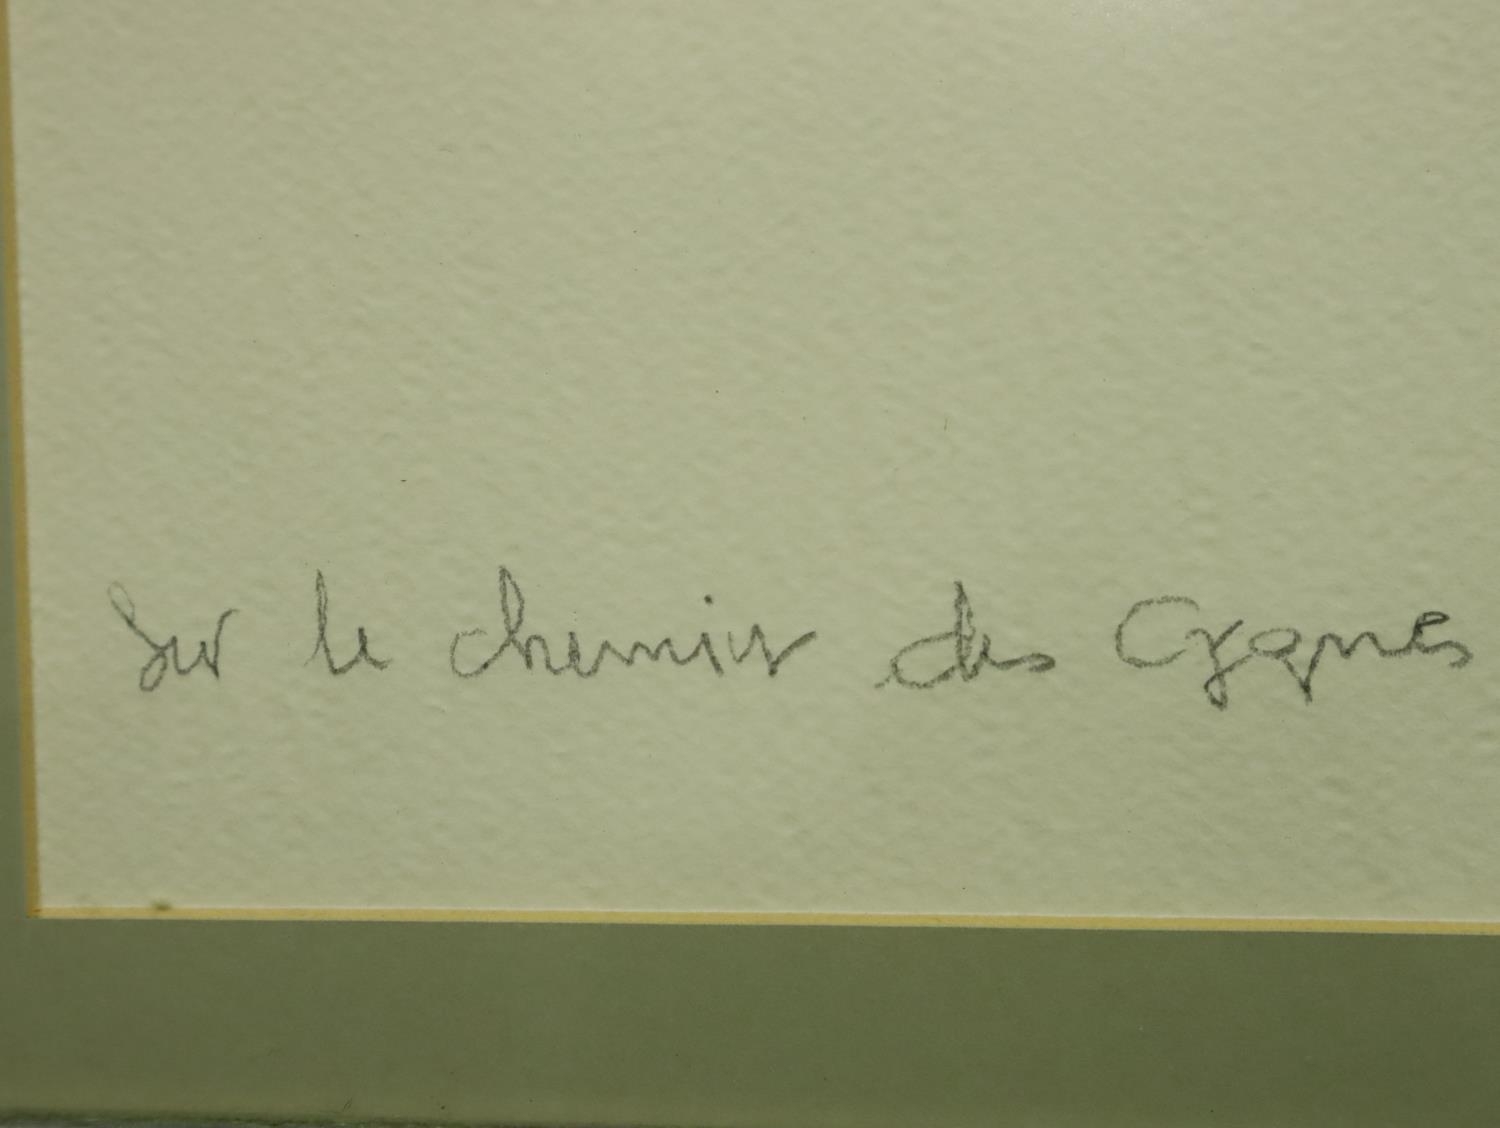 Sur le chemin des Cygnes